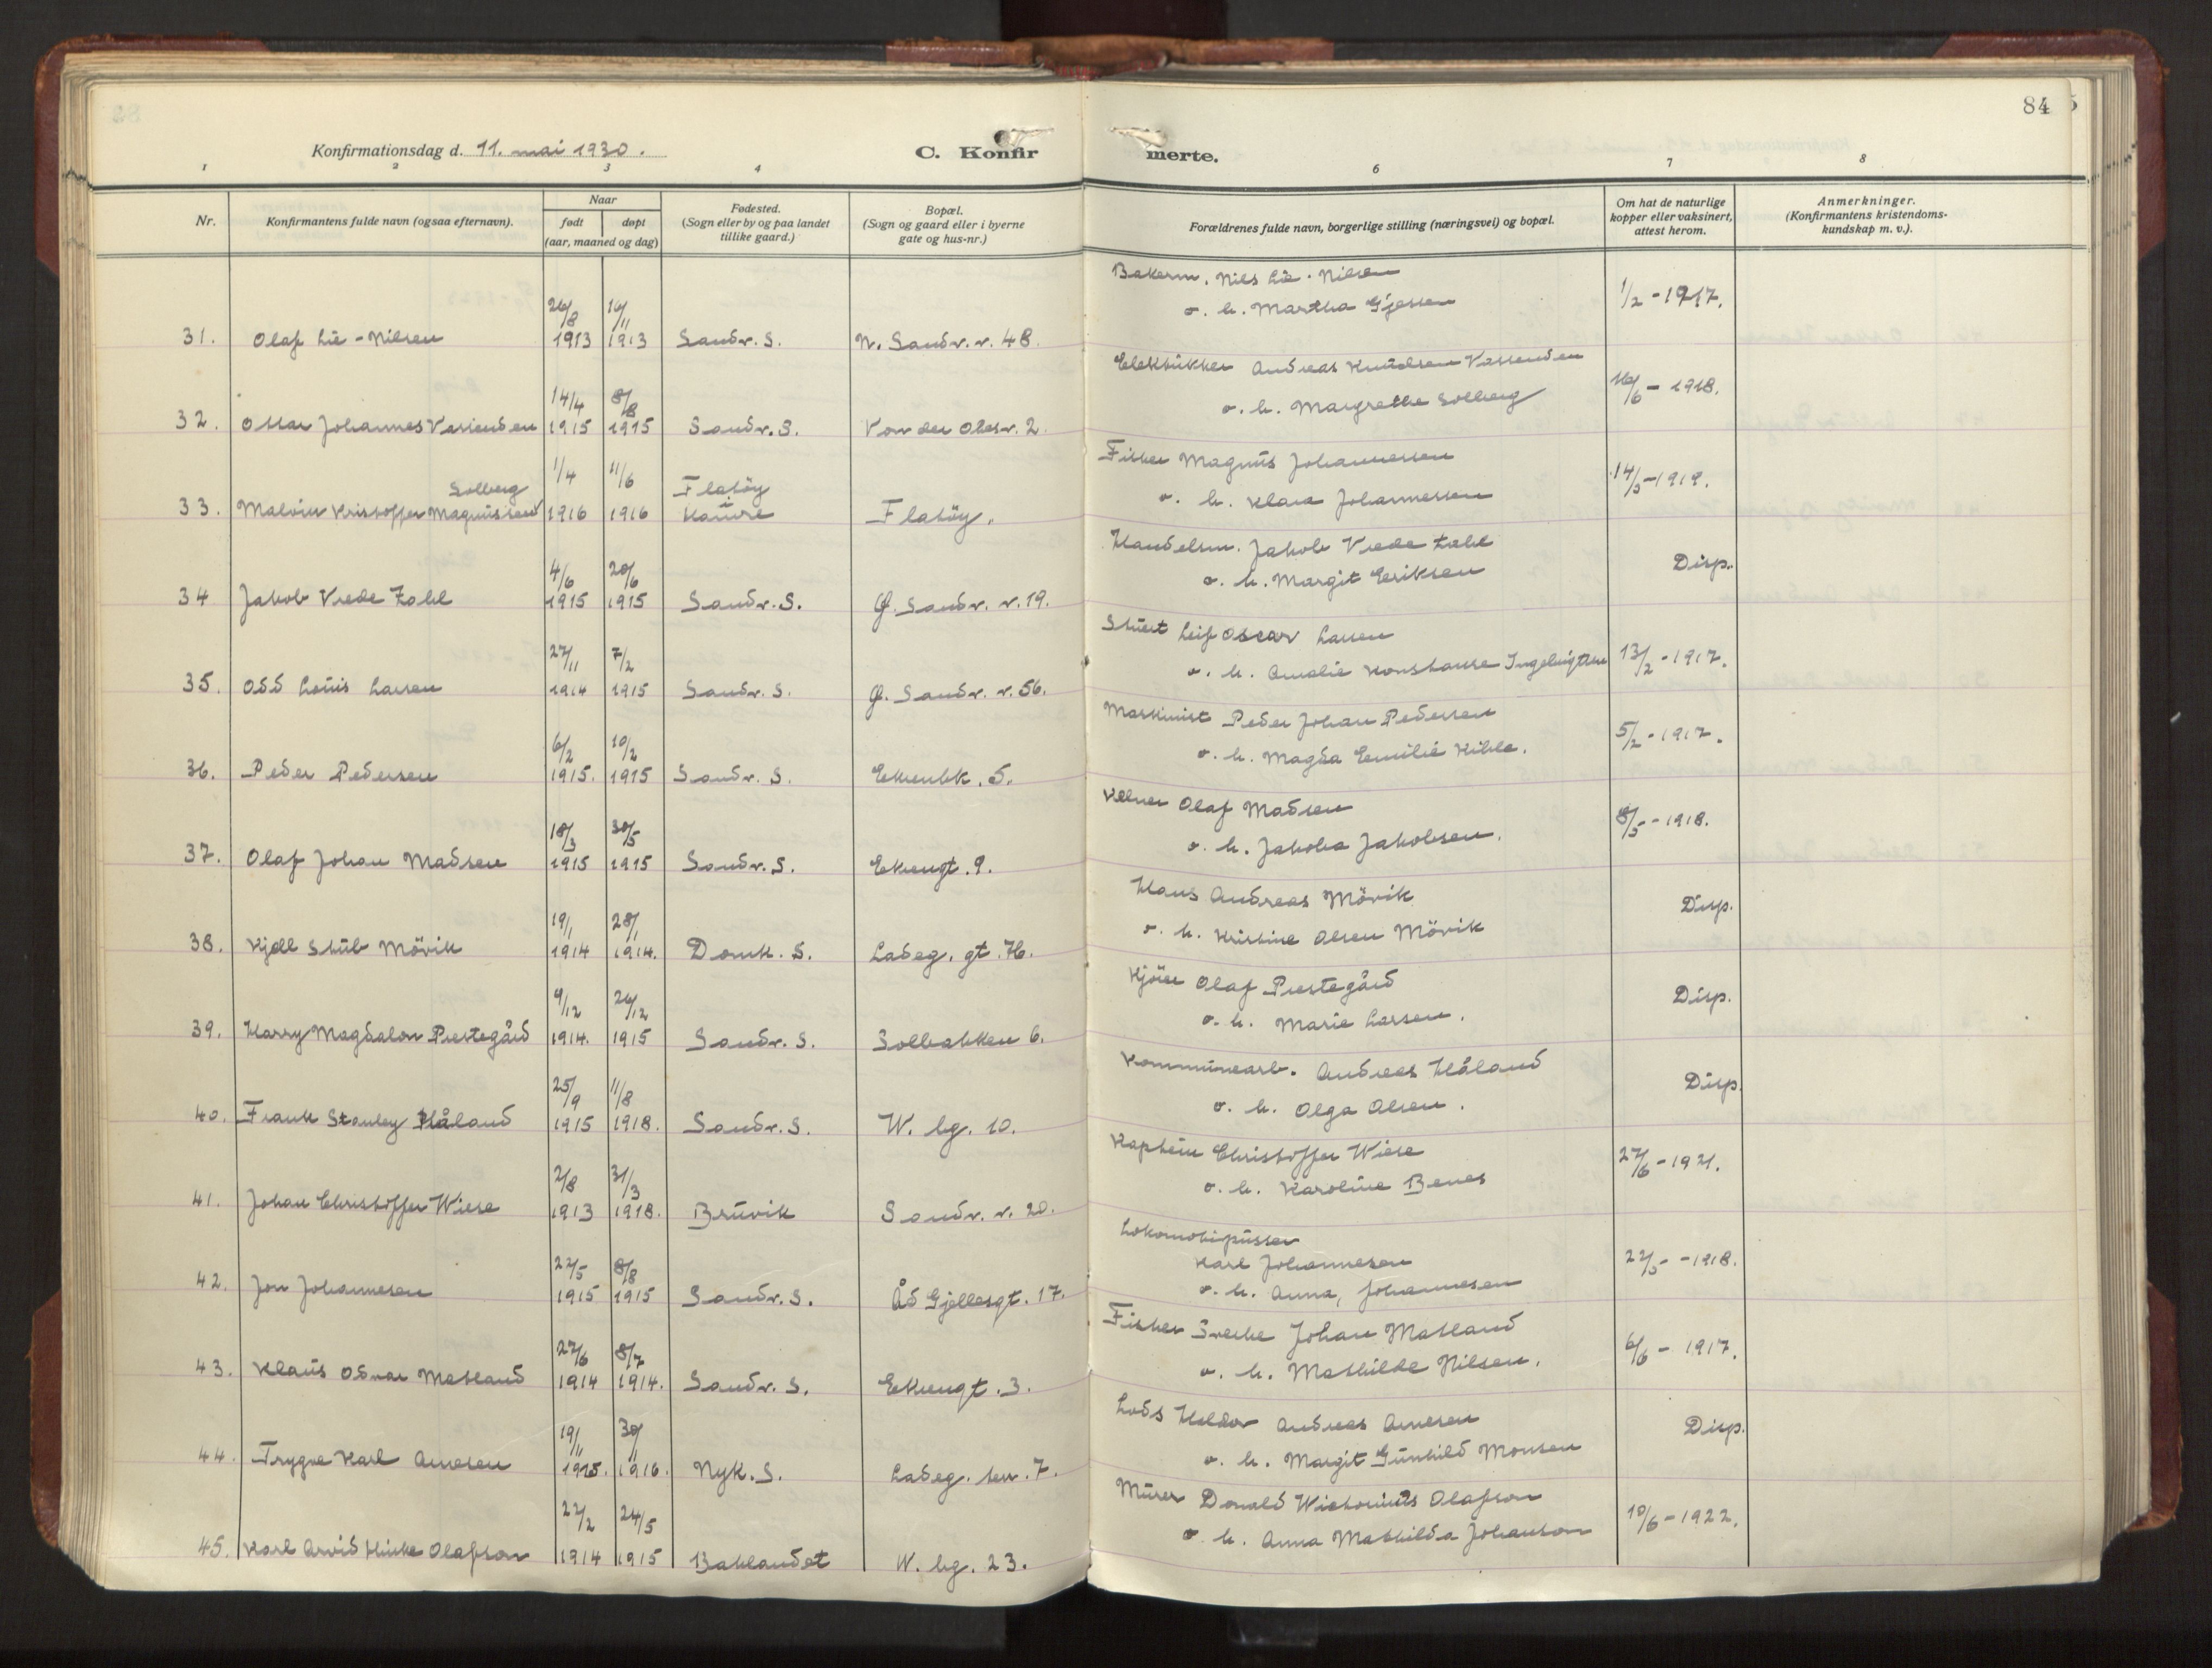 84
Konfirmationsdag d. 11. mai 1930.
C. Konfirmerte.
1 2 3 4 6 7 8
Nr.
Konfirmantens fulde navn (ogsaa efternavn).
Naar
født døpt
(aar, maaned og dag)
Fødested.
(Sogn eller by og paa landet
tillike gaard.)
Bopæl.
(Sogn og gaard eller i byerne
gate og hus-nr.)
Forældrenes fulde navn, borgerlige stilling (næringsvei) og bopæl.
Om hat de naturlige
kopper eller vaksinert,
attest herom.
Anmerkninger.
(Konfirmantens kristendoms-
kundskap m. v.).
Bakerm. Nils Lie-Nilsen
26/8 16/11 o. h. Martha Gjessen 1/2-1917.
31. Olaf Lie-Nilsen 1913 1913 Sandv. S. N. Sandv. v. 48.
Andreas Knudsen Vassenden
14/4 8/8 o. h. Margrethe Solberg 16/6-1918.
32. Ottar Johannes Vassenden 1915 1915 Sandv. S. Von der Olesv. 2.
Fisker Magnus Johannessen
Solberg 1/4 11/6 Flatöy o. h. Klara Johannessen 14/5-1919.
33. Malvin Kristoffer Magnussen 1916 1916 Hamre Flatöy.
Handelsm. Jakob Vrede Zahl
4/6 20/6 o. h. Margit Eriksen Disp.
34 Jakob Vrede Zahl 1915 1915 Sandv. S. Ø. Sandv. v. 19.
Stuert Leif Oscar Larsen
27/11 7/2 o. h. Amalie Konstanse Ingebrigtsen 13/2-1917.
35. Odd Louis Larsen 1914 1915 Sandv. S. Ø. Sandv. v. 56.
Maskinist Peder Johan Pedersen
6/2 10/2 o. h. Magda Emilie Kihle. 5/2-1917.
36. Peder Pedersen 1915. 1915 Sandv. S. Ekrenbk. 5.
Kelner Olaf Madsen
18/3 30/5 o. h. Jakoba Jakobsen. 8/5-1918.
37. Olaf Johan Madsen 1915 1915 Sandv. S. Ekrengt. 9.
Hans Andreas Mövik
19/1 28/1 o. h. Kristine Olsen Mövik Disp.
38. Kjell Stub Mövik 1914 1914. Domk. S. Ladeg. gt. 76.
Kjörer Olaf Prestegård
9/12 26/12 o. h. Marie Larsen. Disp.
39. Harry Magdalon Prestegård 1914. 1915 Sandv. S. Solbakken 6.
Kommunearb. Andreas Håland
25/9 11/8 o. h. Olga Olsen. Disp.
40. Frank Stanley Håland 1915 1918. Sandv. S. W. bg. 10.
Kaptein Christoffer Wiese
2/8 31/3 o. h. Karoline Benes 27/6-1921.
41. Johan Christoffer Wiese 1913 1918. Bruvik Sandv. v. 20.
Lokomotivpusser
Karl Johannesen
22/5 8/8 o. h. Anna, Johannesen 22/5-1918.
42. Jon Johannesen 1915 1915 Sandv. S. Åd Gjellesgt. 17.
Fisker Johan Matland
27/6 8/7 o. h. Mathilde Nilsen. 6/6-1917.
43. Klaus Odvar Matland 1914 1914. Sandv. S. Ekrengt. 3.
Lods Haldor Andreas Arnesen
19/11 30/11 o. h. Margit Gunhild Monsen Disp.
44. Trygve Karl Arnesen 1915. 1916. Nyk. S. Ladeg. ter. 7.
Murer Donald Wictorinus Olafson
22/2 24/5 o. h. Anna Mathilda Johanson 10/6-1922.
45. Karl Arvid Hinke Olafson 1914 1915 Baklandet W. bg. 23.